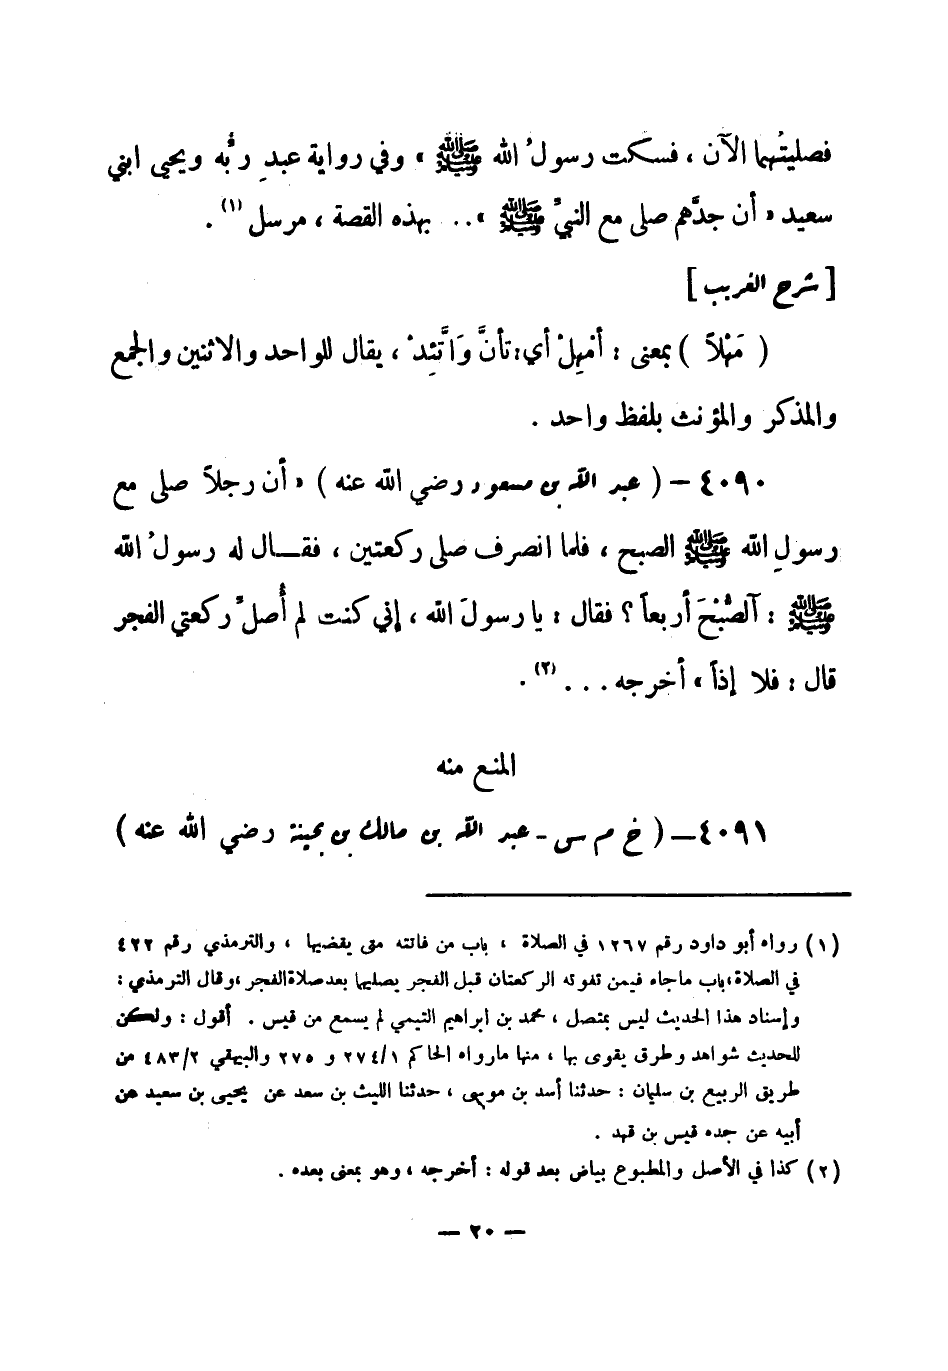 فصليتُهما الآن ، فسكت رسولُ الله ﷺ » وفي رواية عبدِ ربُّه ويحيى ابني
سعيد « أن جدَّهم صلى مع النبيِّ ﷺ » . . بهذه القصة ، مرسل (١) .
[ شرح الغريب ]
( مَهْلاً ) بمعنى : أمْهِلْ أي : تأنَّ وَاتَّئِدْ ، يقال للواحد والاثنين والجمع
والمذكر والمؤنث بلفظ واحد .
٤٠٩٠ – ( عبد الله بن مسعود رضي الله عنه ) « أن رجلاً صلى مع
رسولِ الله ﷺ الصبح ، فلما انصرف صلى ركعتين ، فقـال له رسولُ الله
ﷺ : آلصُّبْحَ أربعاً ؟ فقال : يا رسولَ الله ، إني كنت لم أُصلِّ ركعتي الفجر
قال : فلا إذاً » أخرجه . . . (٢) .
المنع منه
٤٠٩١ – ( خ م س - عبد الله بن مالك بن بحينة رضي الله عنه )
(١) رواه أبو داود رقم ١٢٦٧ في الصلاة ، باب من فاتته متى يقضيها ، والترمذي رقم ٤٢٢
في الصلاة ، باب ماجاء فيمن تفوته الركعتان قبل الفجر يصليها بعد صلاة الفجر ، وقال الترمذي :
وإسناد هذا الحديث ليس بمتصل ، محمد بن ابراهيم التيمي لم يسمع من قيس . أقول : ولكن
للحديث شواهد وطرق يقوى بها ، منها مارواه الحاكم ٢٧٤/١ و ٢٧٥ والبيهقي ٤٨٣/٢ من
طريق الربيع بن سليمان : حدثنا أسد بن موسى ، حدثنا الليث بن سعد عن يحيى بن سعيد عن
أبيه عن جده قيس بن قهد .
(٢) كذا في الأصل والمطبوع بياض بعد قوله : أخرجه ، وهو بمعنى بعده .
– ٢٠ –